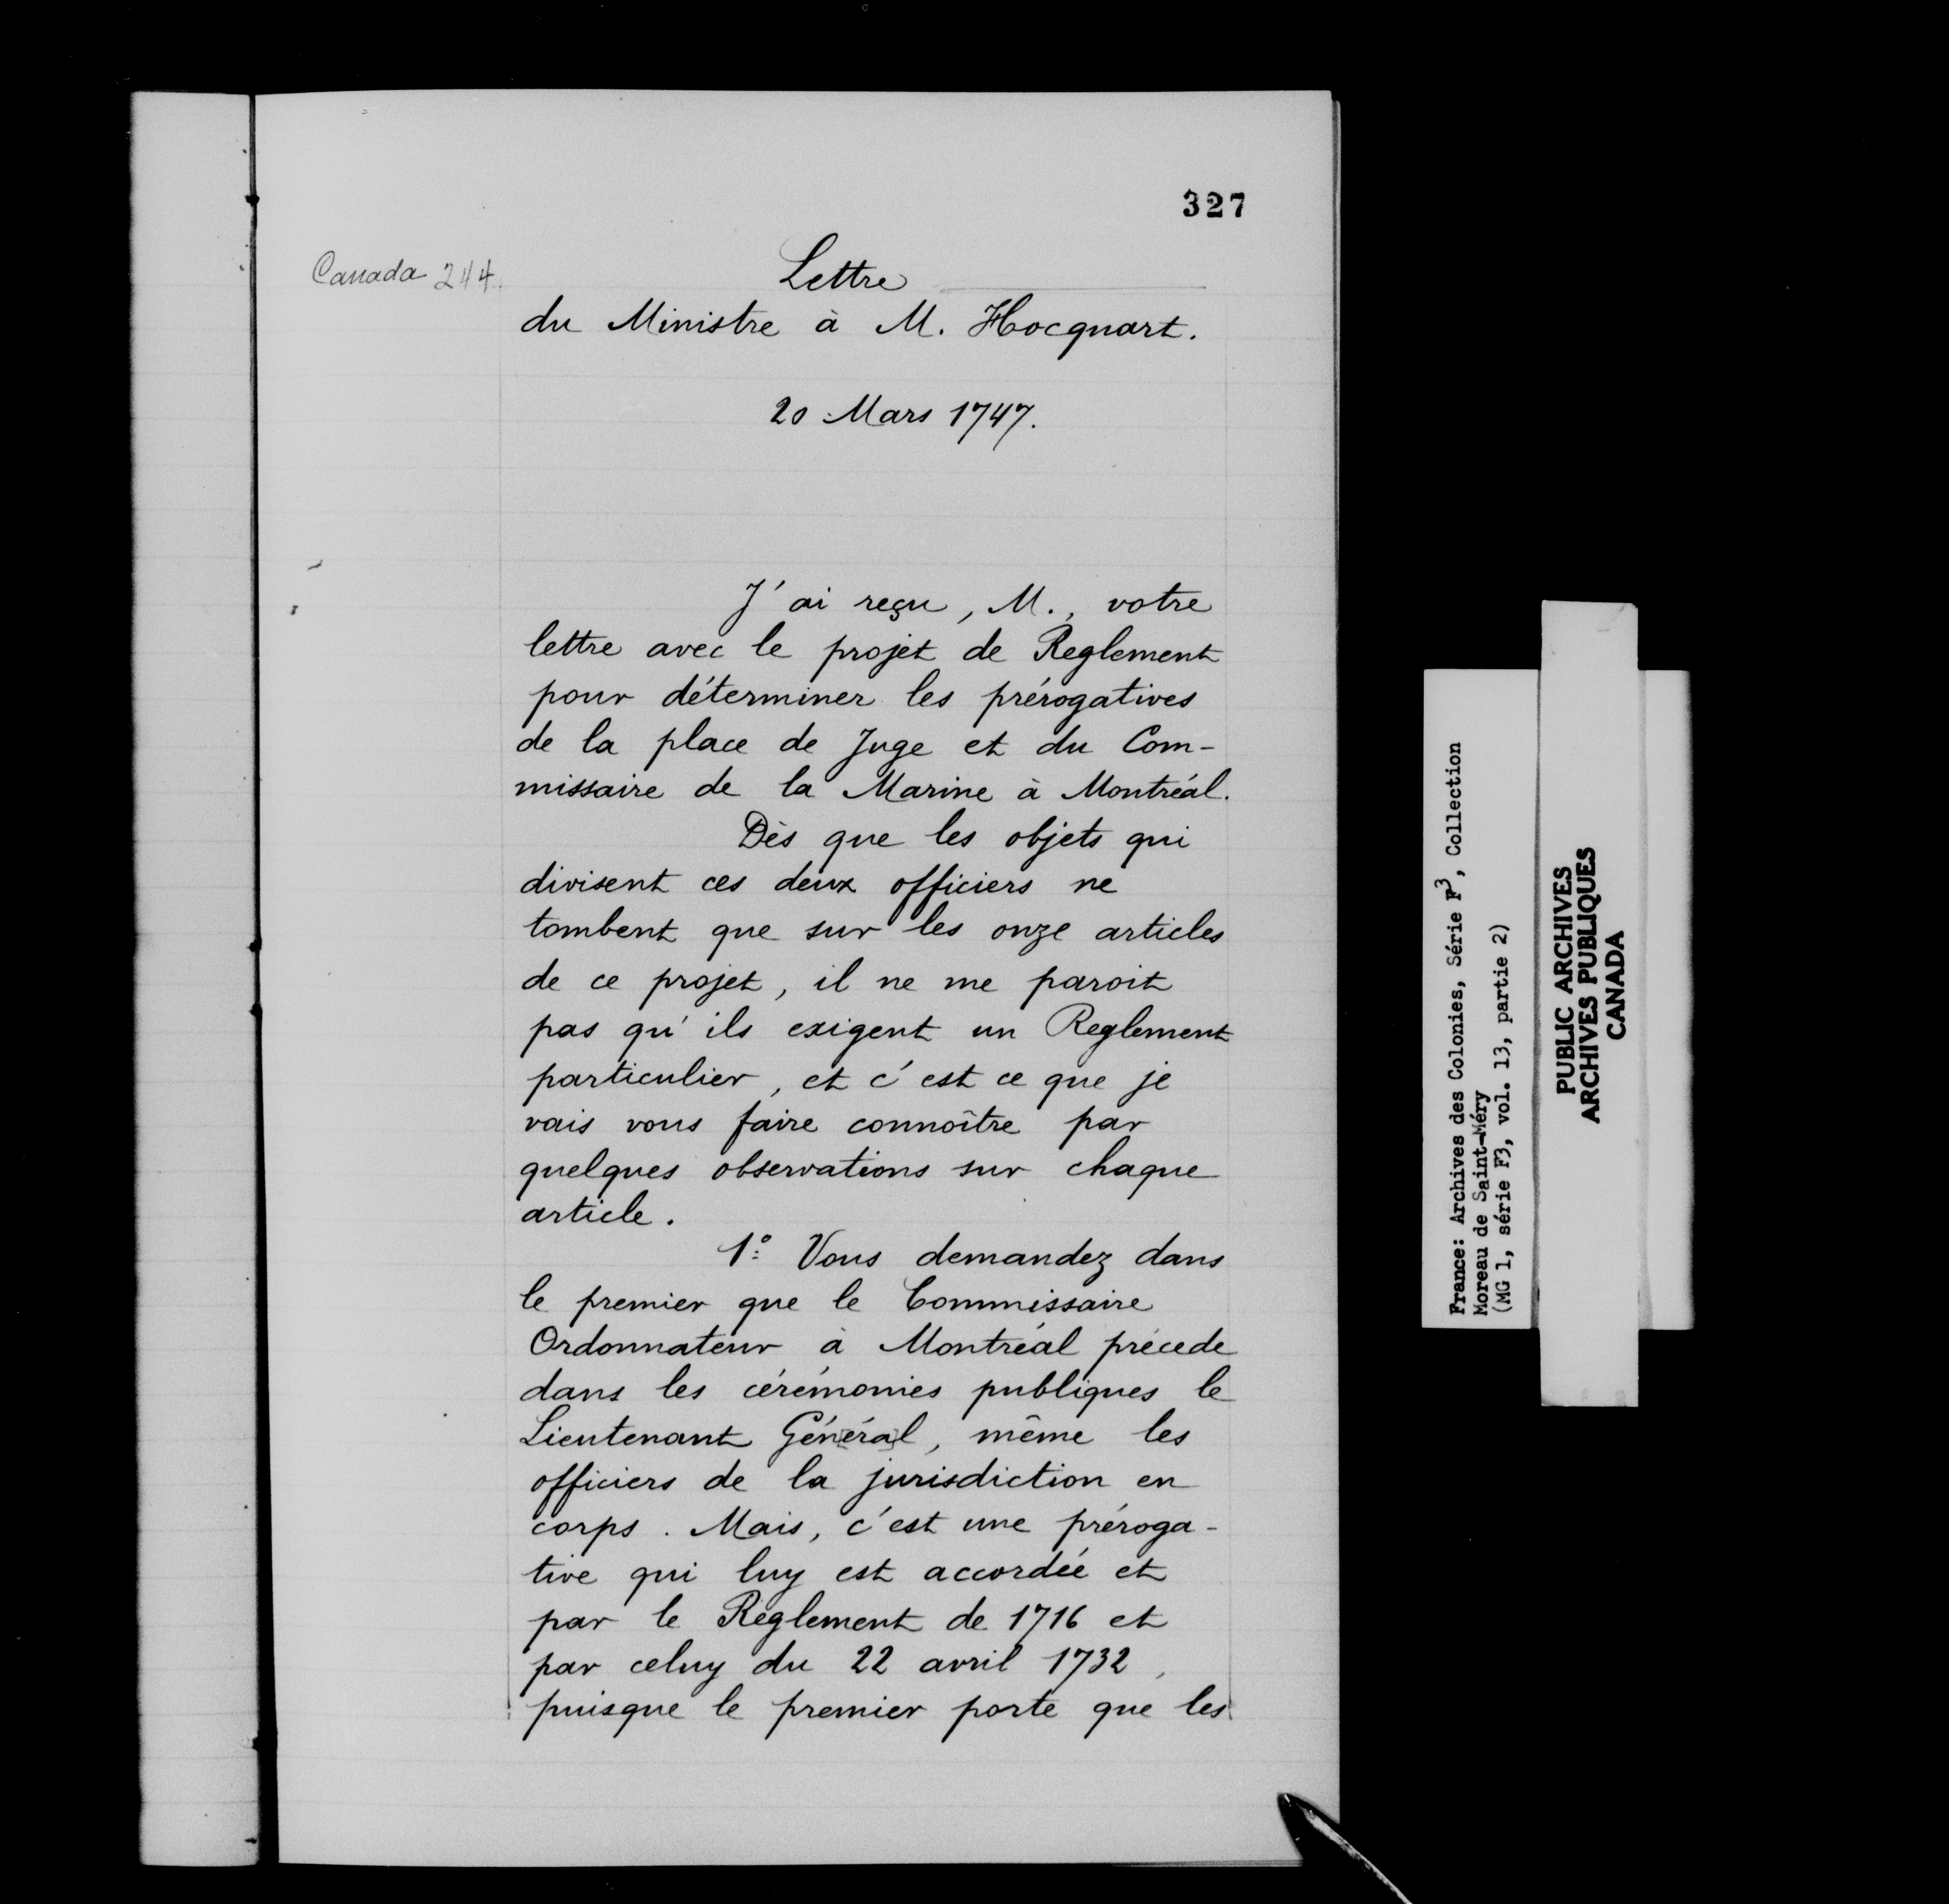 327
Canada 244.
Lettre
du Ministre à M. Hocquart.
20 Mars 1747.
J'ai reçu, M., votre
lettre avec le projet de Reglement
pour déterminer les prérogatives
de la place de Juge et du Com-
missaire de la Marine à Montréal.
Dès que les objets qui
divisent ces deux officiers ne
tombent que sur les onze articles
de ce projet, il ne me paroit
pas qu'ils exigent un Reglement
particulier, et c'est ce que je
vais vous faire connoître par
quelques observations sur chaque
article.
1º Vous demandez dans
le premier que le Commissaire
Ordonnateur à Montréal précede
dans les cérémonies publiques le
Lieutenant Général, même les
officiers de la jurisdiction en
corps. Mais, c'est une préroga-
tive qui luy est accordée et
par le Réglement de 1716 et
par celuy du 22 avril 1732,
puisque le premier porte que les
France: Archives des Colonies, Série F3, Collection
Moreau de Saint-Méry
(MG 1, série F3, vol. 13, partie 2)
PUBLIC ARCHIVES
ARCHIVES PUBLIQUES
CANADA